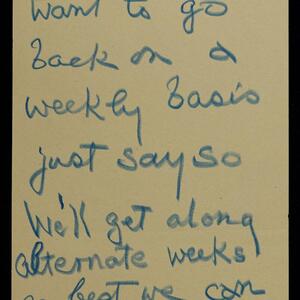 want to go
back on a
weekly basis
just say so
We'll get along
alternate weeks
as best we can